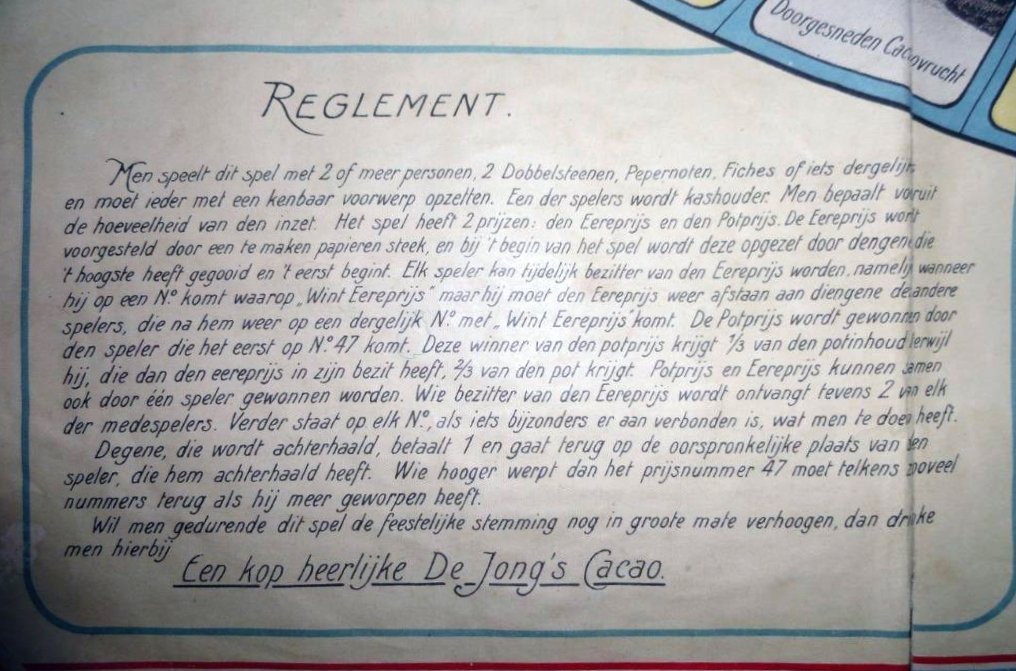 Doorgesneden Cacaovrucht
REGLEMENT.
Men speelt dit spel met 2 of meer personen, 2 Dobbelsteenen, Pepernoten, Fiches of iets dergelijks
en moet ieder met een kenbaar voorwerp opzetten. Een der spelers wordt kashouder. Men bepaalt vooruit
de hoeveelheid van den inzet. Het spel heeft 2 prijzen: den Eereprijs en den Potprijs. De Eereprijs wordt
voorgesteld door een te maken papieren steek, en bij 't begin van het spel wordt deze opgezet door dengene die
't hoogste heeft gegooid en 't eerst begint. Elk speler kan tijdelijk bezitter van den Eereprijs worden, namelijk wanneer
hij op een No. komt waarop „Wint Eereprijs" maar hij moet den Eereprijs weer afstaan aan diengene de andere
spelers, die na hem weer op een dergelijk No. met „Wint Eereprijs" komt. De Potprijs wordt gewonnen door
den speler die het eerst op No. 47 komt. Deze winner van den potprijs krijgt 1/3 van den potinhoud terwijl
hij, die dan den eereprijs in zijn bezit heeft, 2/3 van den pot krijgt. Potprijs en Eereprijs kunnen samen
ook door één speler gewonnen worden. Wie bezitter van den Eereprijs wordt ontvangt tevens 2 van elk
der medespelers. Verder staat op elk No., als iets bijzonders er aan verbonden is, wat men te doen heeft.
Degene, die wordt achterhaald, betaalt 1 en gaat terug op de oorspronkelijke plaats van den
speler, die hem achterhaald heeft. Wie hooger werpt dan het prijsnummer 47 moet telkens zooveel
nummers terug als hij meer geworpen heeft.
Wil men gedurende dit spel de feestelijke stemming nog in groote mate verhoogen, dan drinke
men hierbij
Een kop heerlijke De Jong's Cacao.